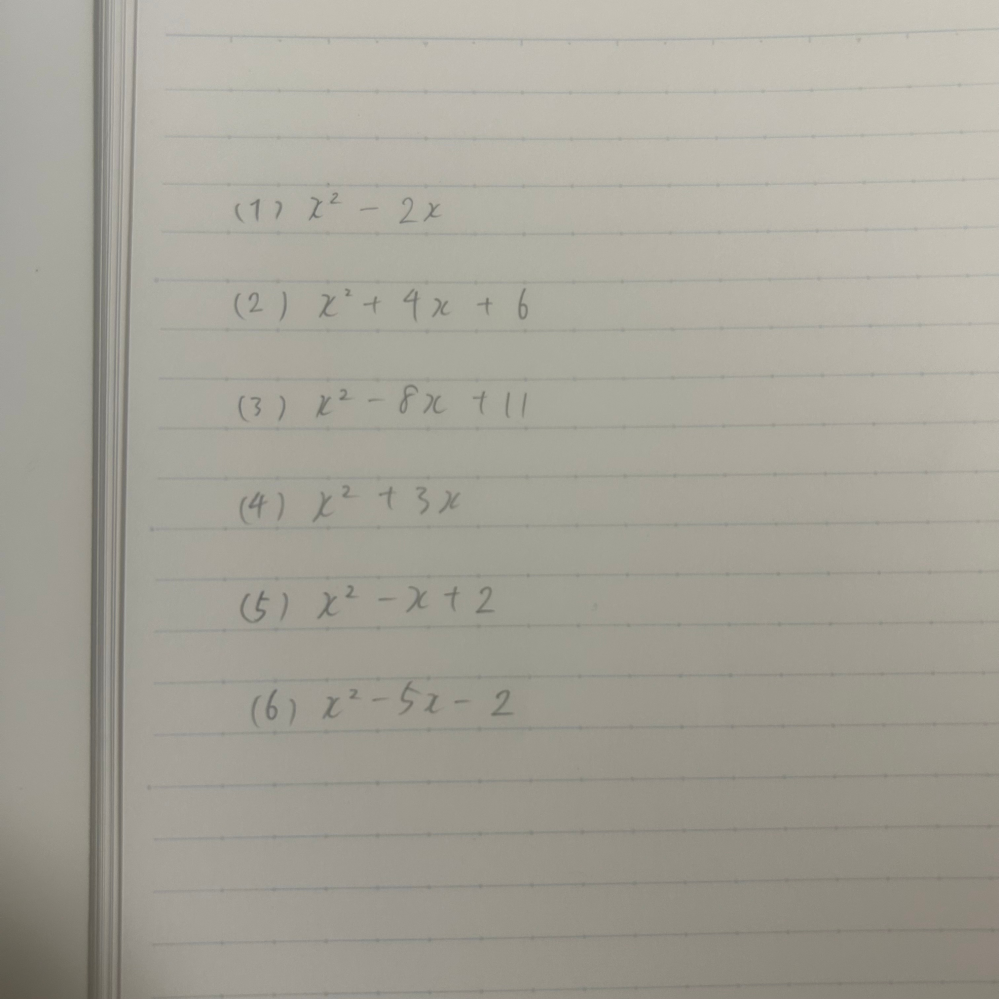 (1) x² - 2x
(2) x² + 4x + 6
(3) x² - 8x + 11
(4) x² + 3x
(5) x² - x + 2
(6) x² - 5x - 2